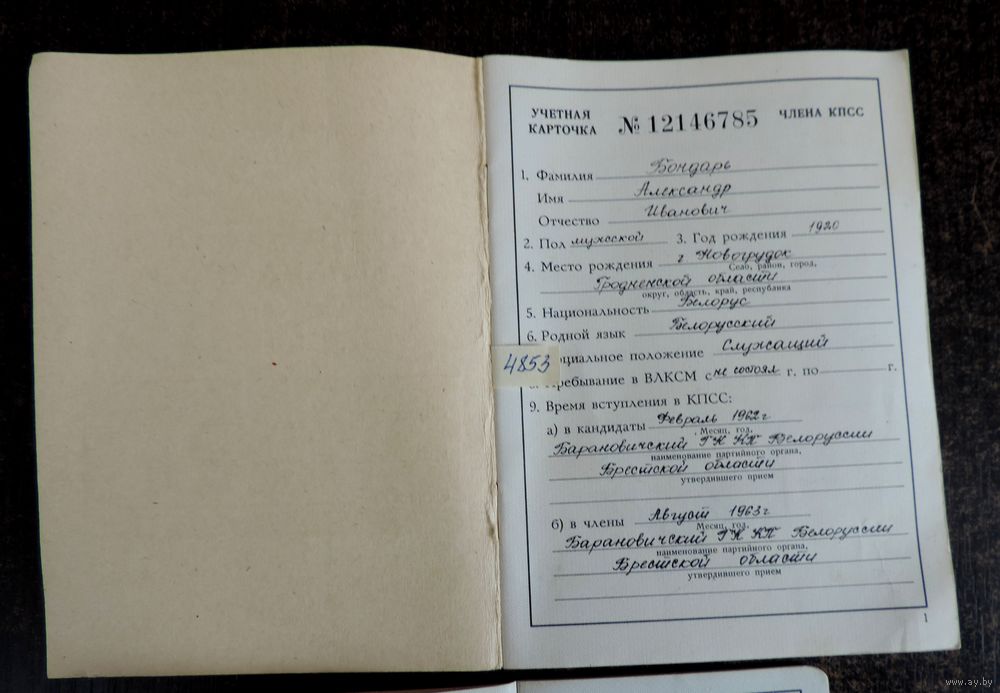 УЧЕТНАЯ КАРТОЧКА № 12146785 ЧЛЕНА КПСС
1. Фамилия Бондарь
Имя Александр
Отчество Иванович
2. Пол мужской 3. Год рождения 1920
4. Место рождения г Новогрудок
Село, район, город,
Гродненской области
округ, область, край, республика
5. Национальность Белорус
6. Родной язык Белорусский
оциальное положение Служащий
4853
Пребывание в ВЛКСМ с не состоял г. по г.
9. Время вступления в КПСС:
а) в кандидаты Февраль 1962 г
Месяц, год,
Барановичский ГК КП Белоруссии
наименование партийного органа,
Брестской области
утвердившего прием
б) в члены Август 1963 г
Месяц, год,
Барановичский ГК КП Белоруссии
наименование партийного органа,
Брестской области
утвердившего прием
1
www.ay.by